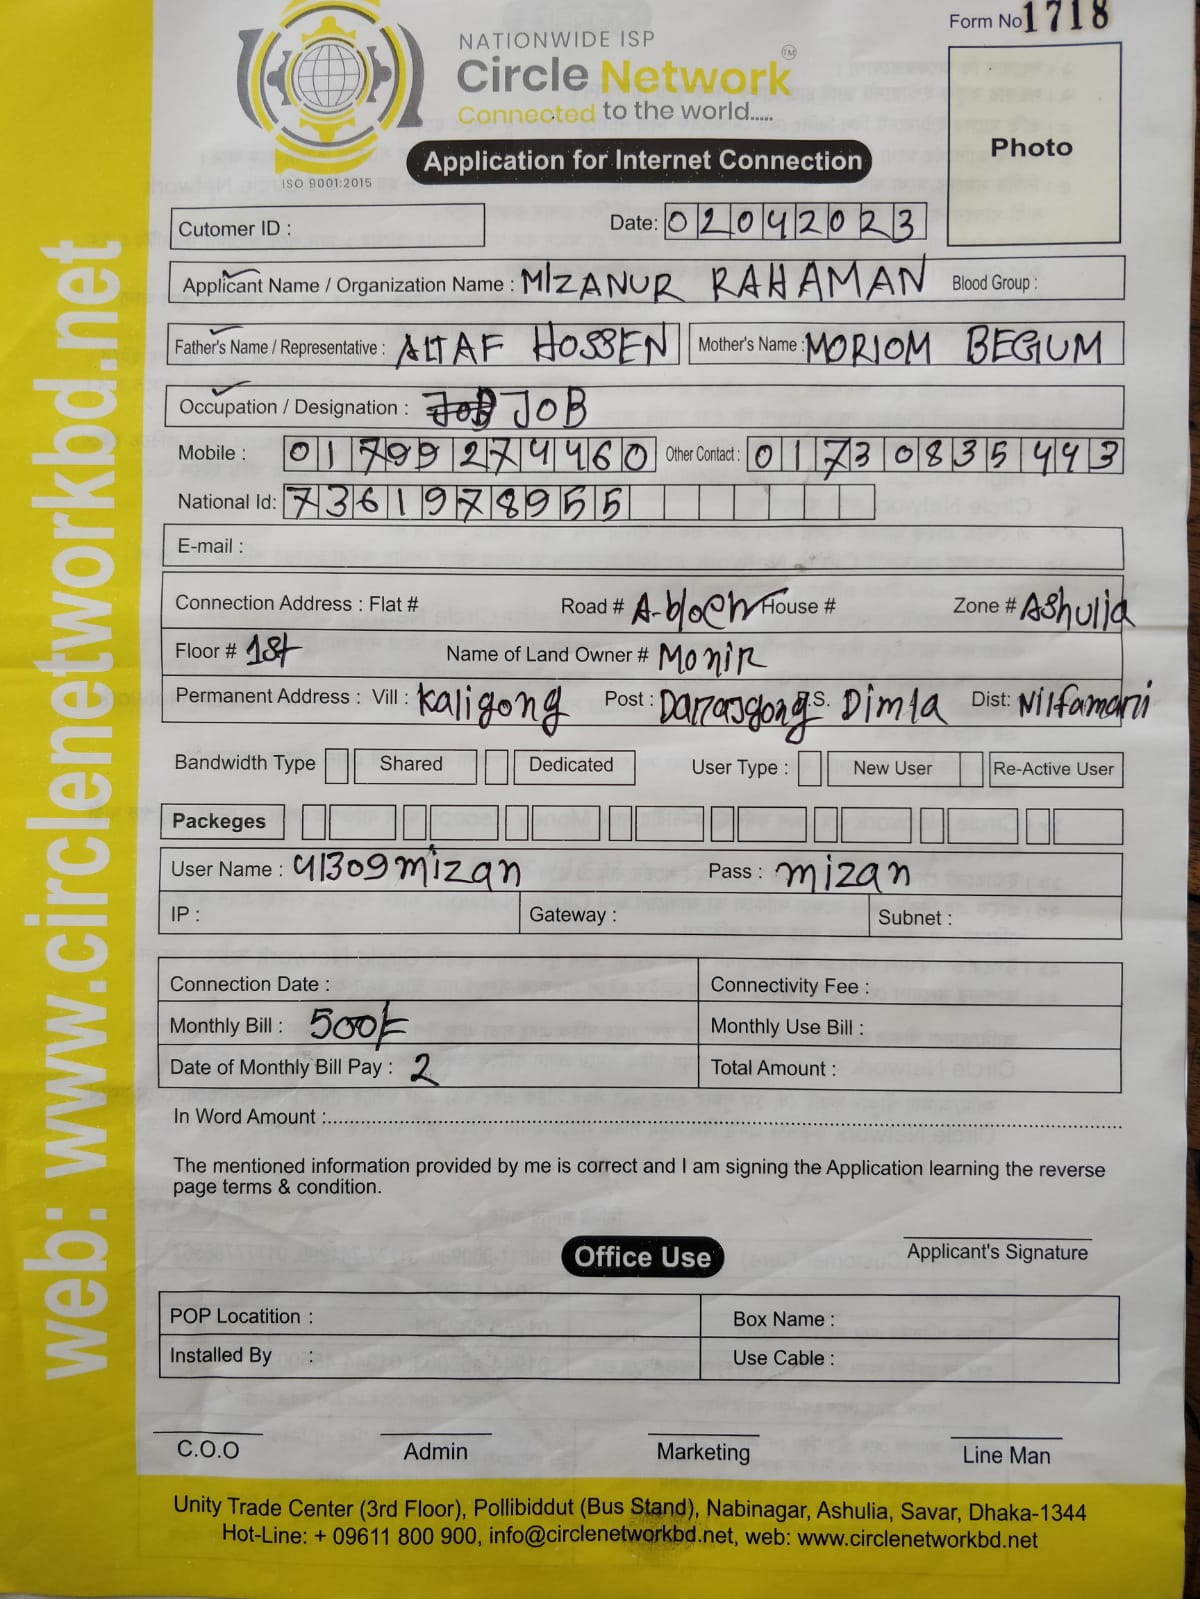 Form No 1718
NATIONWIDE ISP
Circle Network TM
Connected to the world.....
ISO 9001:2015
Application for Internet Connection
Photo
Cutomer ID :
Date: 02042023
Applicant Name / Organization Name : MIZANUR RAHAMAN Blood Group :
Father's Name / Representative : ALTAF HOSSEN Mother's Name : MORIOM BEGUM
Occupation / Designation : JOB JOB
Mobile : 01799274460 Other Contact : 01730835443
National Id: 7361978955
E-mail :
Connection Address : Flat # Road # A-block House # Zone # Ashulia
Floor # 1st Name of Land Owner # MoniR
Permanent Address : Vill : Kaligong Post : P.S. Dimla Dist: Nilfamari
Bandwidth Type Shared Dedicated User Type : New User Re-Active User
Packeges
User Name : 41309mizan Pass : mizan
IP : Gateway : Subnet :
Connection Date : Connectivity Fee :
Monthly Bill : 500/= Monthly Use Bill :
Date of Monthly Bill Pay : 2 Total Amount :
In Word Amount :
The mentioned information provided by me is correct and I am signing the Application learning the reverse
page terms & condition.
Applicant's Signature
Office Use
POP Locatition : Box Name :
Installed By : Use Cable :
C.O.O Admin Marketing Line Man
Unity Trade Center (3rd Floor), Pollibiddut (Bus Stand), Nabinagar, Ashulia, Savar, Dhaka-1344
Hot-Line: + 09611 800 900, info@circlenetworkbd.net, web: www.circlenetworkbd.net
web: www.circlenetworkbd.net